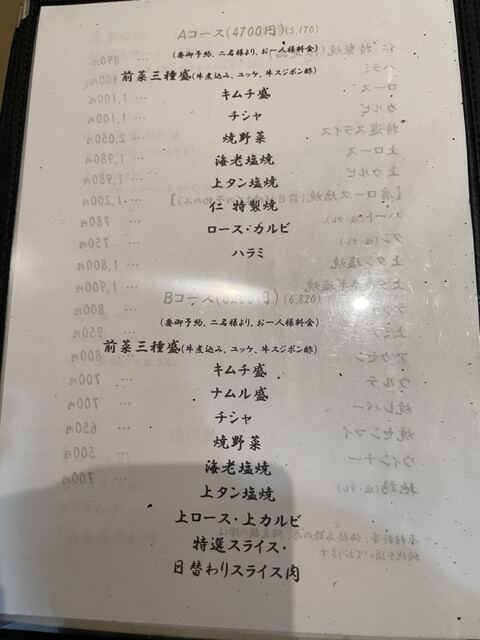 Aコース(4700円)(5,170)
(要御予約、二名様より、お一人様料金)
前菜三種盛(牛煮込み、ユッケ、牛スジポン酢)
キムチ盛
チシャ
焼野菜
海老塩焼
上タン塩焼
仁 特製焼
ロース・カルビ
ハラミ
Bコース(6200円)(6,820)
(要御予約、二名様より、お一人様料金)
前菜三種盛(牛煮込み、ユッケ、牛スジポン酢)
キムチ盛
ナムル盛
チシャ
焼野菜
海老塩焼
上タン塩焼
上ロース・上カルビ
特選スライス・
日替わりスライス肉